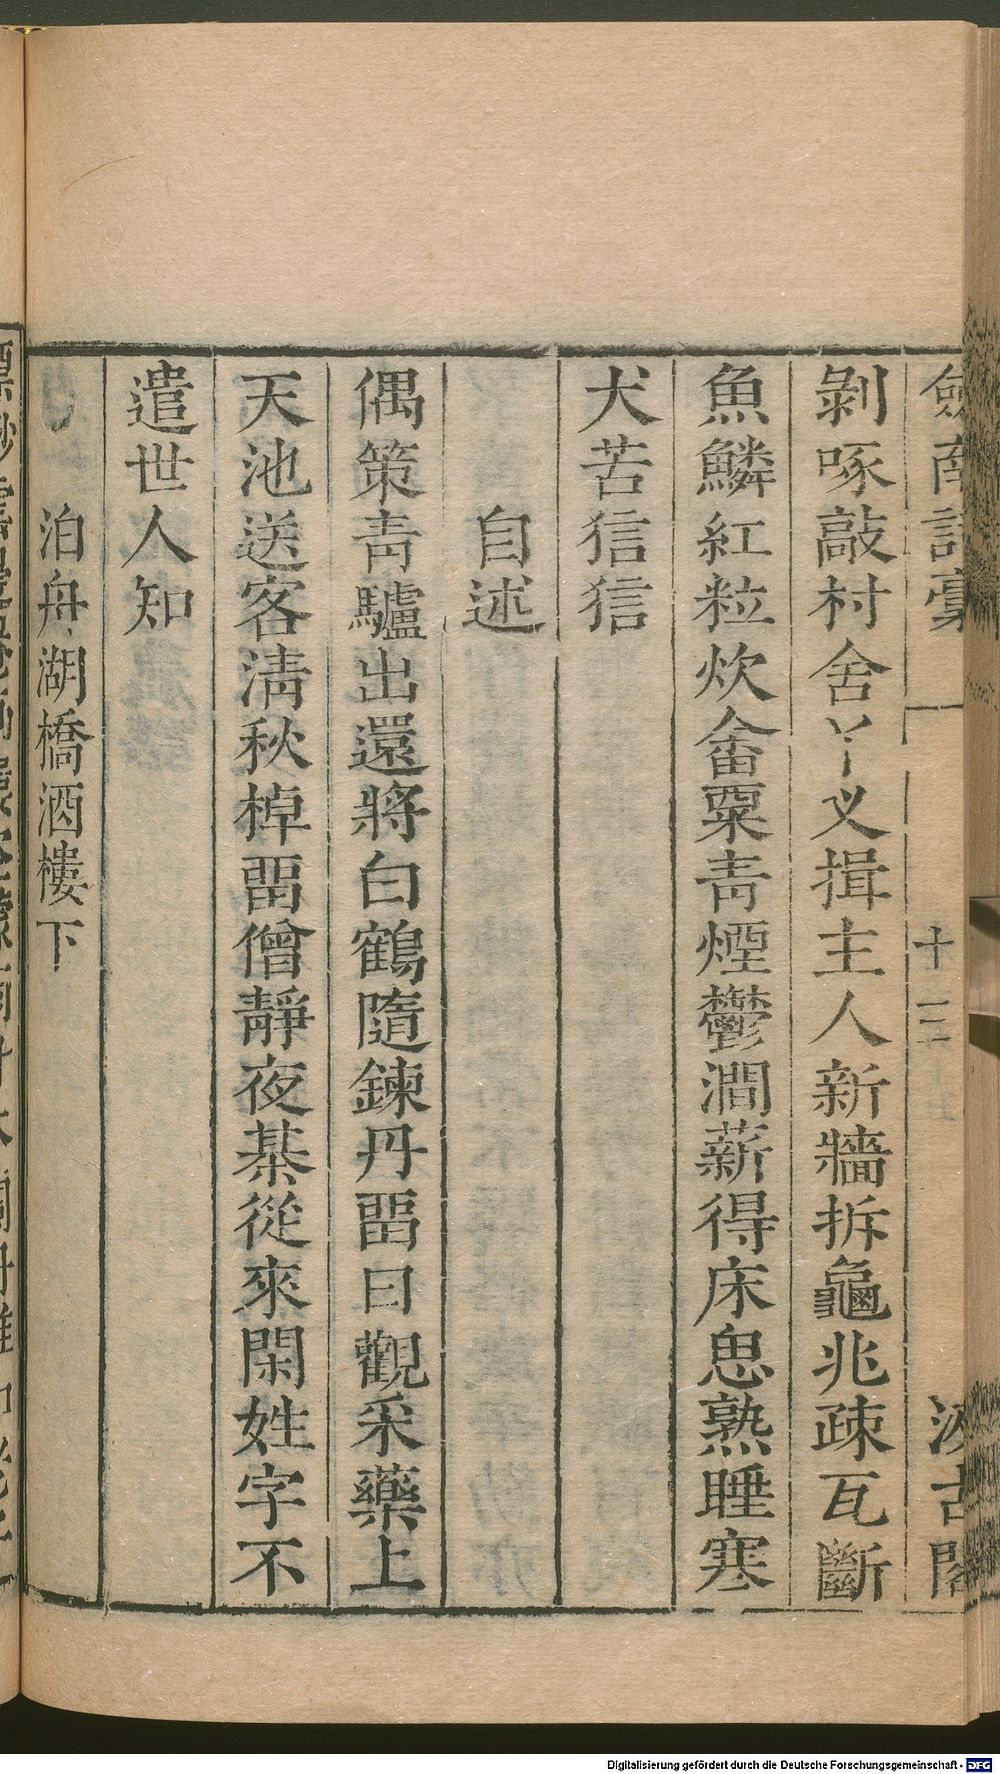 劍南詩稾 十三 汲古閣
剝啄敲村舍丫叉揖主人新牆拆龜兆疎瓦斷
魚鱗紅粒炊畬粟青煙鬱澗薪得床思熟睡寒
犬苦狺狺
自述
偶策青驢出還將白鶴隨鍊丹畱日觀采藥上
天池送客淸秋棹畱僧靜夜棊從來閑姓字不
遣世人知
泊舟湖橋酒樓下
Digitalisierung gefördert durch die Deutsche Forschungsgemeinschaft - DFG